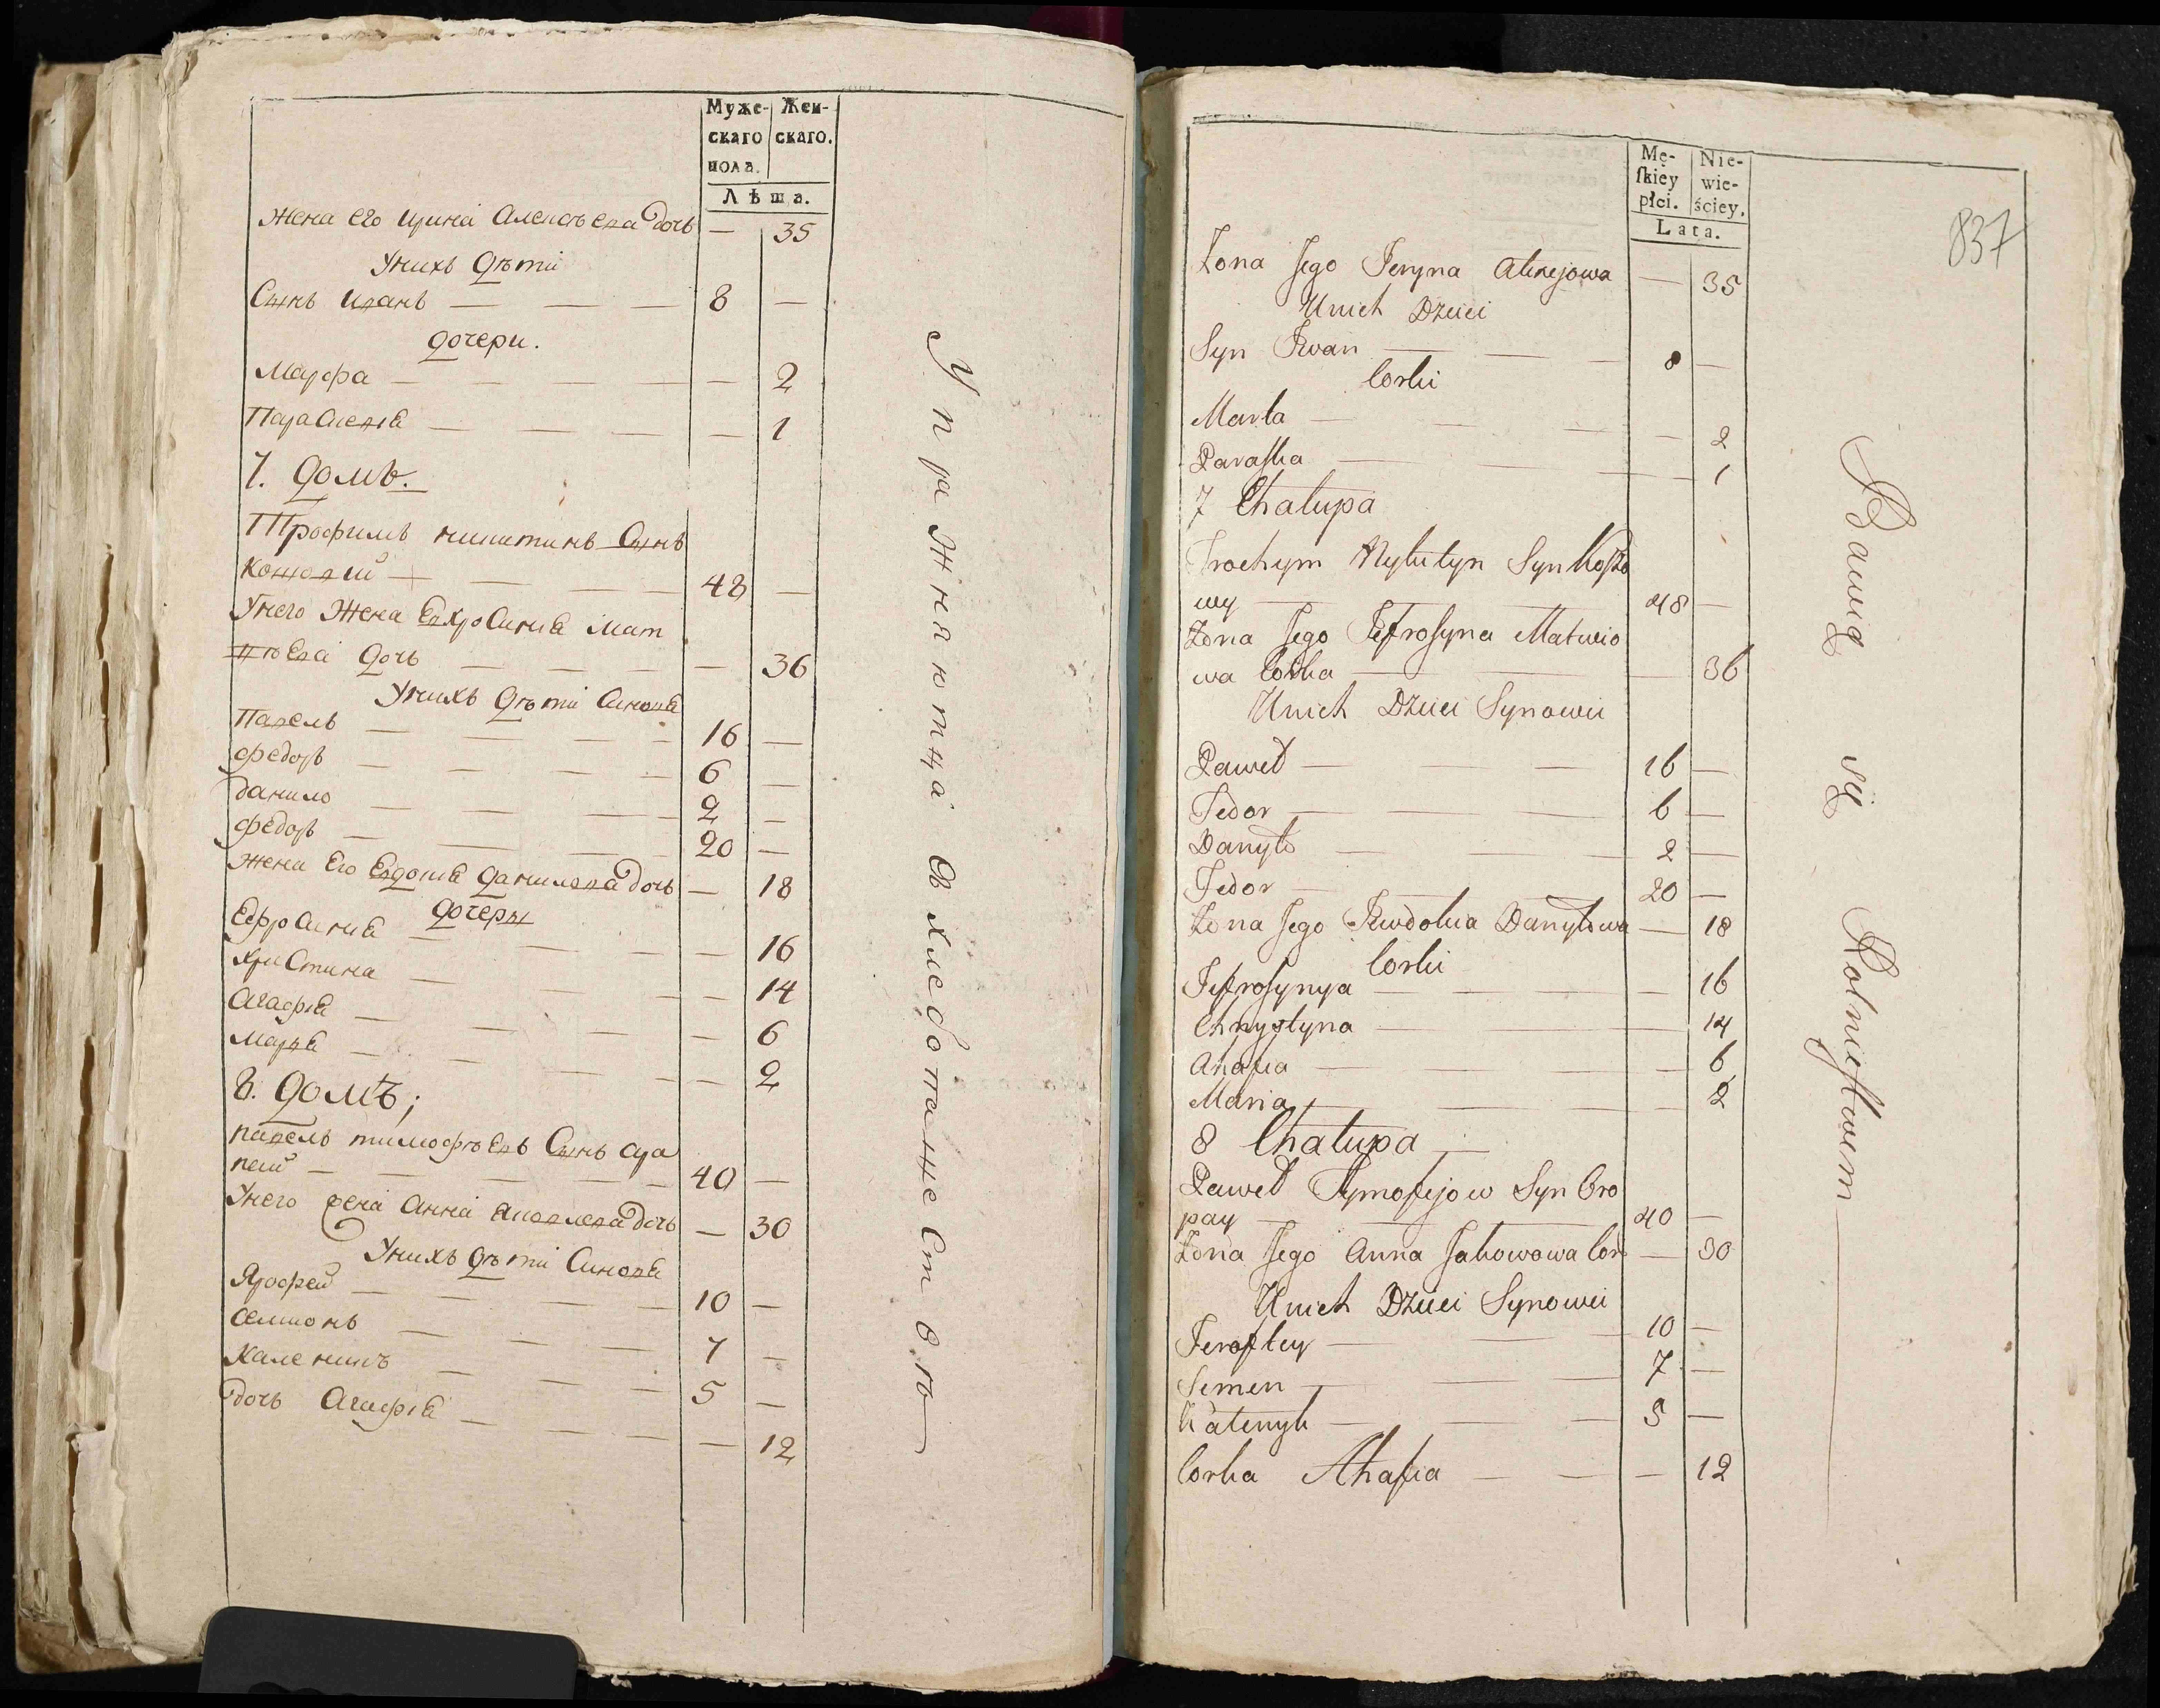 Муже-
скаго
пола.
Жен-
скаго.
Лѣта.
Жена его Ирина Алексѣева дочь — 35
Унихъ дѣти
Сынъ Иванъ — — — 8 —
дочери.
Марфа — — — — — 2
Параскевія — — — — 1
7. домъ.
Трофимъ никитинъ Сынъ
— — 48 —
Унего Жена Мат
вѣева дочь — — — — 36
Унихъ дѣти Синовя
Павель — — — — 16 —
федоръ — — — — 6 —
данило — — — — 2 —
федоръ — — — 20 —
Жена Его Евдокия данилова дочь — 18
дочеры
Ефросиния — — — 16
христина — — — — 14
Агафія — — — — 6
Мария — — — — 2
8. домъ;
павель тимофѣевъ Сынъ сра
пей — — — — 40 —
Унего жена Анна Яковлева дочь — 30
Унихъ дѣти Синовя
Ярофей — — — — 10 —
Семионъ — — — 7 —
Каленикъ — — — 5 —
дочь Агафія — — — — 12
Упражняютца в хлебопашествѣ
Mę-
ſkiey
płci.
Nie-
wie-
ściey.
Lata.
837
Żona Jego Jeryna Alexejowa — 35
Unich Dzieci
Syn Iwan — — — 8 —
Corki
Marta — — — — 2
Paraska — — — 1
7 Chałupa
Trochym Nykityn Syn Koſzo
wy — — 48 —
Żona Jego Jefroſyna Matwio
wa Corka — — — 36
Unich Dzieci Synowie
Paweł — — 16 —
Fedor — — 6 —
Danyło — — — 2 —
Fedor — — 20 —
Żona Jego Iewdokia Danyłowa — 18
Corki
Jefroſynya — — — 16
Chrystyna — — — 14
Ahafia — — — 6
Maria — — — 2
8 Chałupa —
Paweł Tymofijow Syn Cro
pay — — — 40 —
Żona Jego Anna Jakowowa Cor — 30
Unich Dzieci Synowie
Jerofiey — — — 10 —
Semen — — — 7 —
Kalenyk — — — 5 —
Corka Ahafia — — — 12
Bawią się Rolnictwem